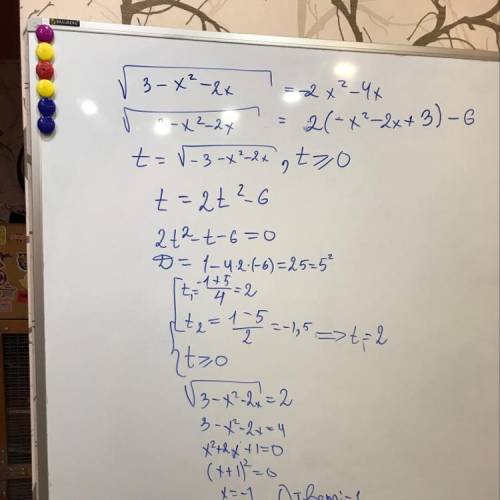 √(3-x²-2x) = -2x²-4x
√(3-x²-2x) = 2(-x²-2x+3)-6
t = √(-3-x²-2x), t⩾0
t = 2t²-6
2t²-t-6=0
D = 1-4·2·(-6)=25=5²
t₁=(-1+5)/4=2
t₂=(1-5)/2=-1,5 ⟹ t₁=2
t⩾0
√(3-x²-2x)=2
3-x²-2x=4
x²+2x+1=0
(x+1)²=0
x=-1 Ответ:-1